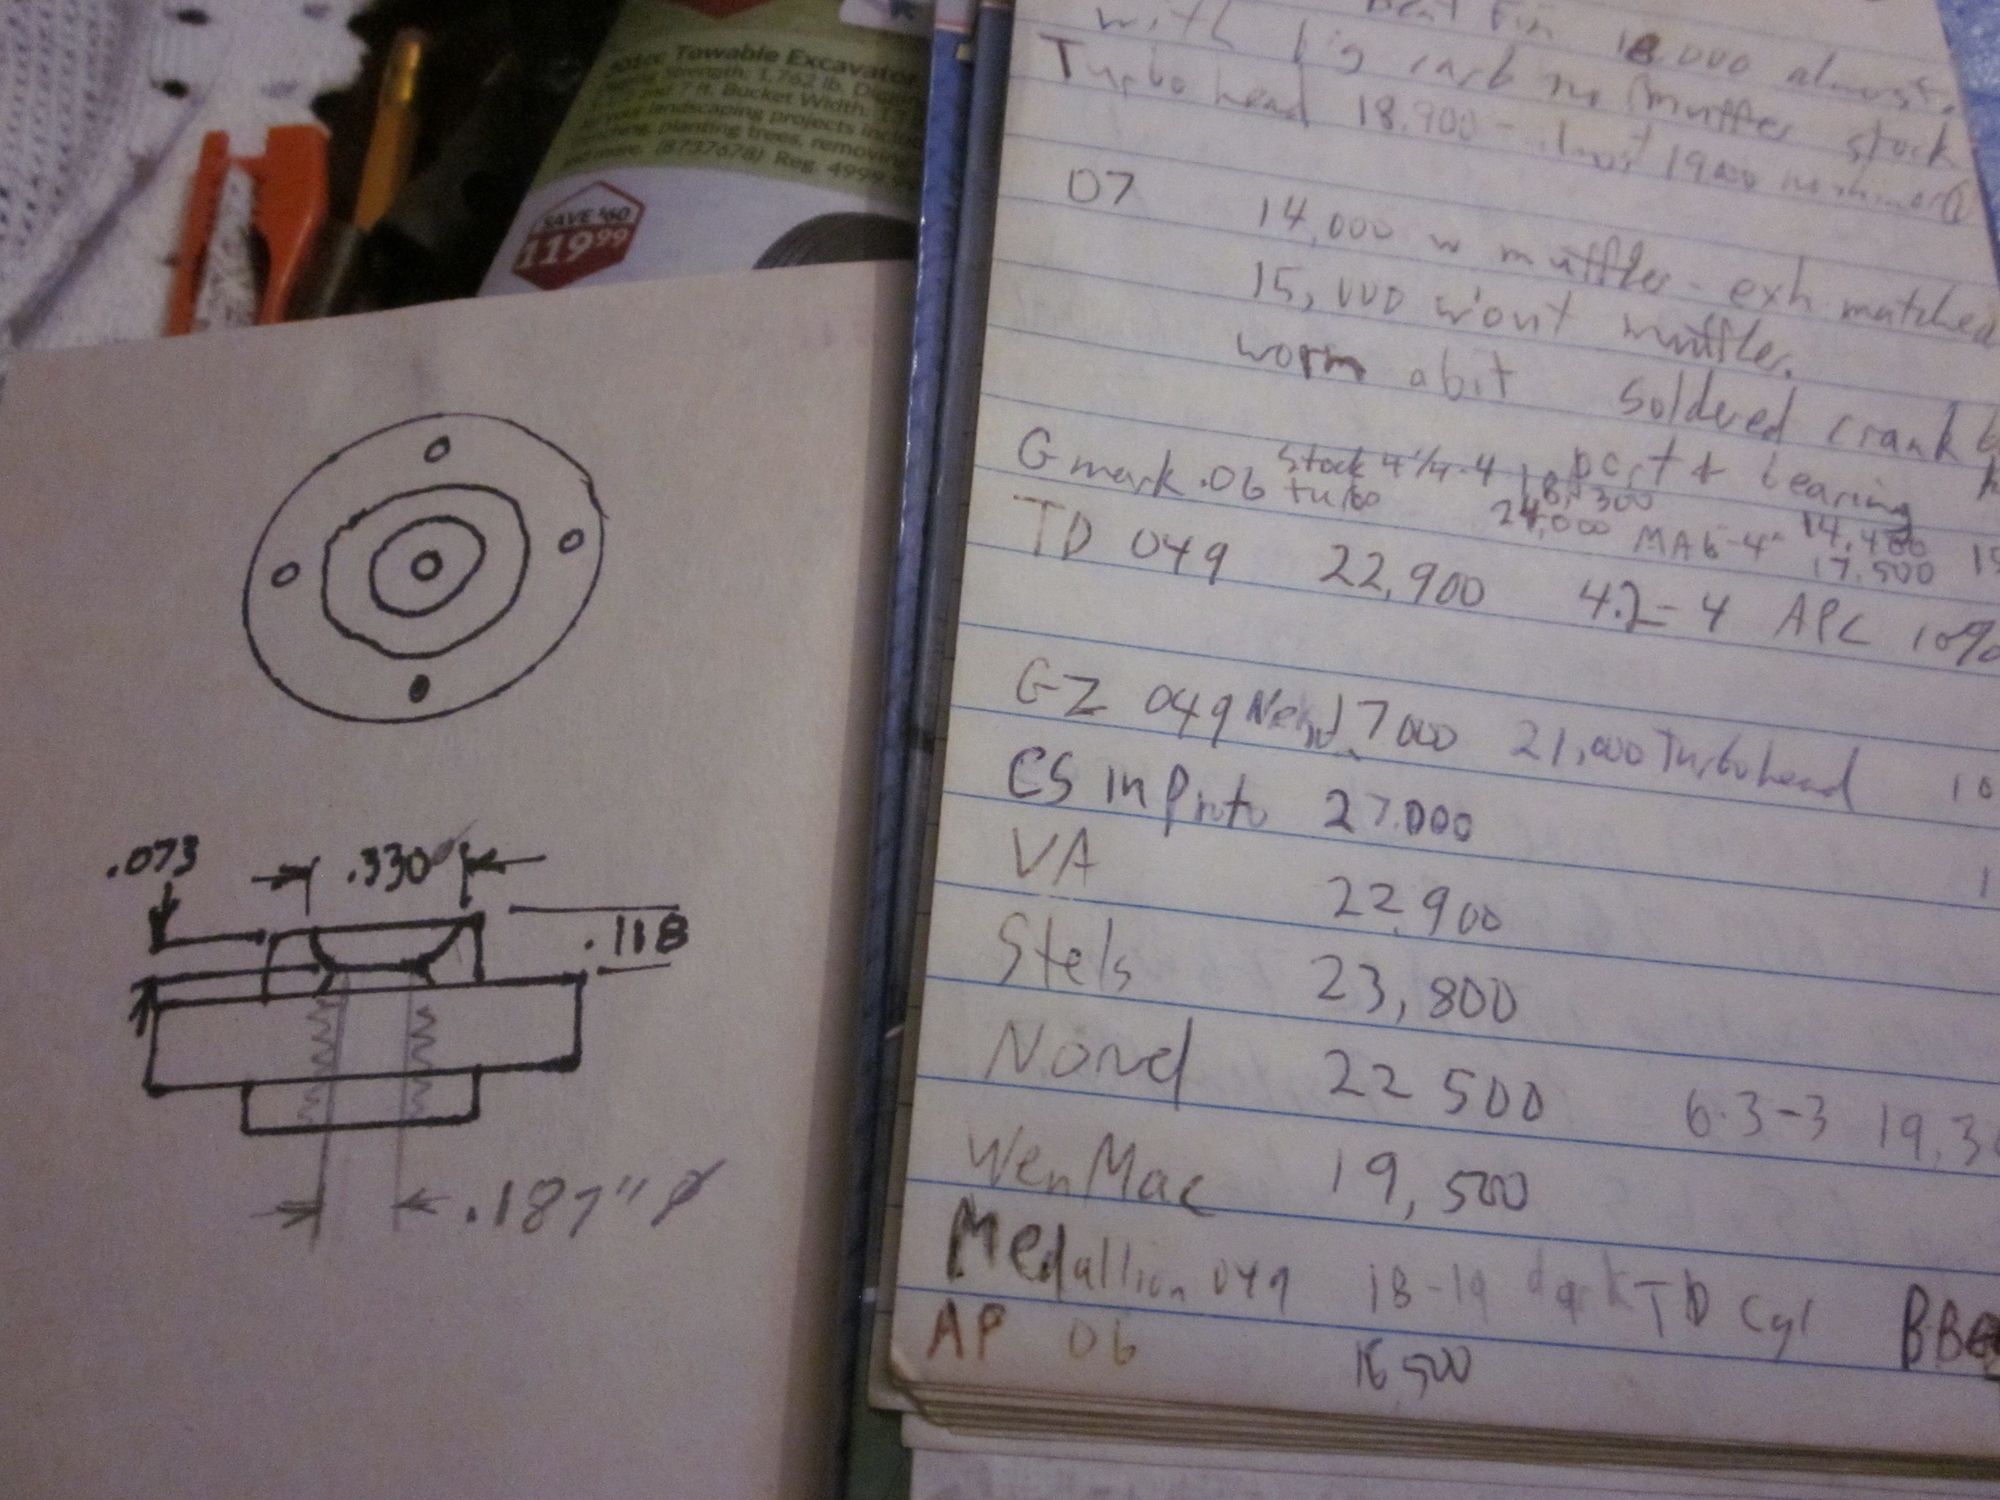 Towable Excavator
Strength: 1,762 lb.
and 7 ft. Bucket Width:
your landscaping projects
planting trees, removing
and more. (8737678) Reg. 4999.99
SAVE $60
119.99
.073
.330
.118
.187" ø
18.000 almost.
with big carb no muffler stock
Turbo head 18.900 - 19000
07 14,000 w muffler - exh matched
15,000 w'out muffler.
worm a bit soldered crank
port & bearing
G mark .06 stock 4 1/4-4 18,300
turbo 24,000 MA 6-4" 14,400 15
17,500
TD 049 22,900 4.2-4 APC 10%
GZ 049 17000 21,000 Turbohead 10
CS in Proto 27.000
VA 22,900
Stels 23,800
Norvel 22 500 6.3-3 19,3
WenMac 19,500
Medallion 049 18-19 TD Cyl
AP 06